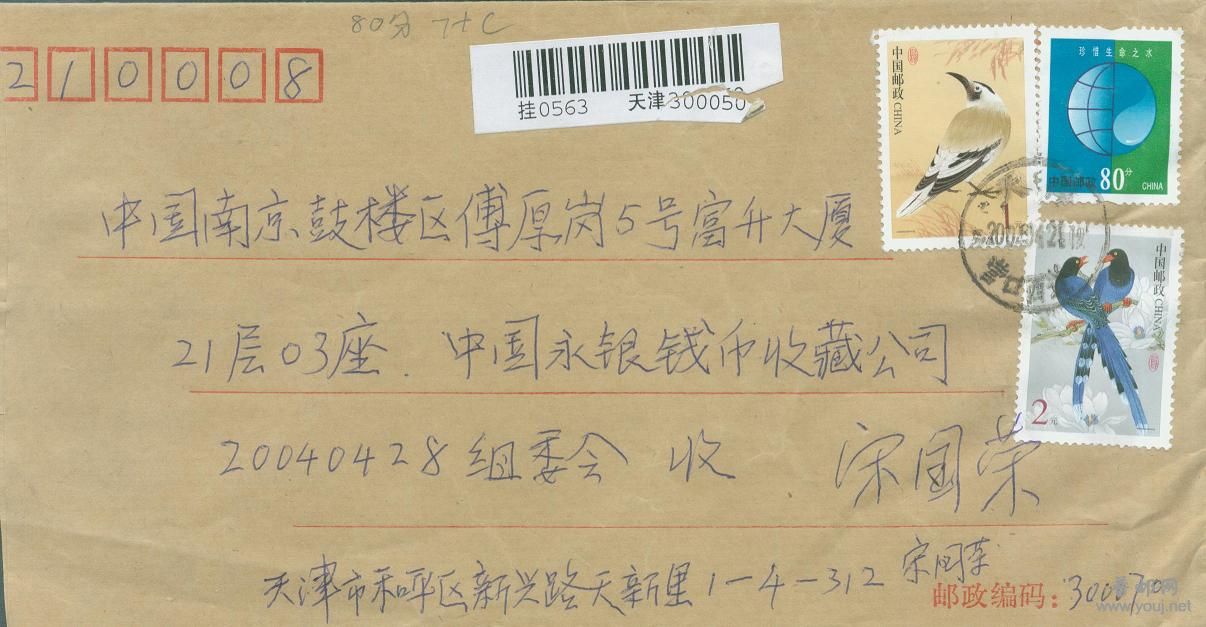 80分
210008
挂0563 天津300050
中国邮政 CHINA
珍惜生命之水
中国邮政 80分 CHINA
中国邮政 CHINA
2元
中国南京鼓楼区傅厚岗5号富升大厦
21层03座. 中国永银钱币收藏公司
20040428组委会 收 宋国荣
天津市和平区新兴路天新里1-4-312 宋国荣
邮政编码: 300070
www.youj.net